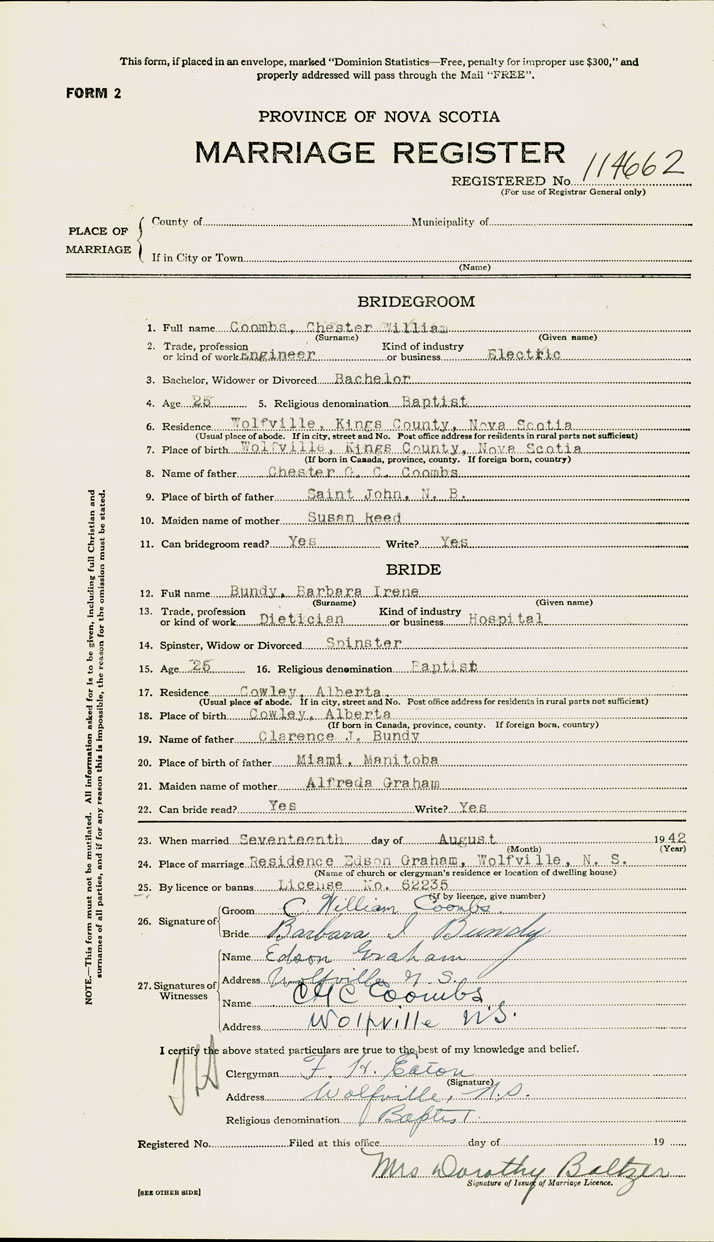 This form, if placed in an envelope, marked "Dominion Statistics—Free, penalty for improper use $300," and
properly addressed will pass through the Mail "FREE".
FORM 2
PROVINCE OF NOVA SCOTIA
MARRIAGE REGISTER
REGISTERED No. 114662
(For use of Registrar General only)
PLACE OF MARRIAGE
County of Municipality of
If in City or Town
(Name)
BRIDEGROOM
1. Full name Coombs, Chester William
(Surname) (Given name)
2. Trade, profession or kind of work Engineer Kind of industry or business Electric
3. Bachelor, Widower or Divorced Bachelor
4. Age 25 5. Religious denomination Baptist
6. Residence Wolfville, Kings County, Nova Scotia
(Usual place of abode. If in city, street and No. Post office address for residents in rural parts not sufficient)
7. Place of birth Wolfville, Kings County, Nova Scotia
(If born in Canada, province, county. If foreign born, country)
8. Name of father Chester G. C. Coombs
9. Place of birth of father Saint John, N. B.
10. Maiden name of mother Susan Reed
11. Can bridegroom read? Yes Write? Yes
BRIDE
12. Full name Bundy, Barbara Irene
(Surname) (Given name)
13. Trade, profession or kind of work Dietician Kind of industry or business Hospital
14. Spinster, Widow or Divorced Spinster
15. Age 25 16. Religious denomination Baptist
17. Residence Cowley, Alberta
(Usual place of abode. If in city, street and No. Post office address for residents in rural parts not sufficient)
18. Place of birth Cowley, Alberta
(If born in Canada, province, county. If foreign born, country)
19. Name of father Clarence J. Bundy
20. Place of birth of father Miami, Manitoba
21. Maiden name of mother Alfreda Graham
22. Can bride read? Yes Write? Yes
23. When married Seventeenth day of August 1942
(Month) (Year)
24. Place of marriage Residence Edson Graham, Wolfville, N. S.
(Name of church or clergyman's residence or location of dwelling house)
25. By licence or banns License No. 62235
(If by licence, give number)
26. Signature of
Groom C. William Coombs
Bride Barbara I Bundy
27. Signatures of Witnesses
Name Edson Graham
Address Wolfville N.S.
Name C G C Coombs
Address Wolfville N.S.
I certify the above stated particulars are true to the best of my knowledge and belief.
Clergyman F. H. Eaton
(Signature)
Address Wolfville, N.S.
Religious denomination Baptist.
Registered No. Filed at this office day of 19
Mrs Dorothy Baltzer
Signature of Issuer of Marriage Licence.
[SEE OTHER SIDE]
NOTE.—This form must not be mutilated. All information asked for is to be given, including full Christian and
surnames of all parties, and if for any reason this is impossible, the reason for the omission must be stated.